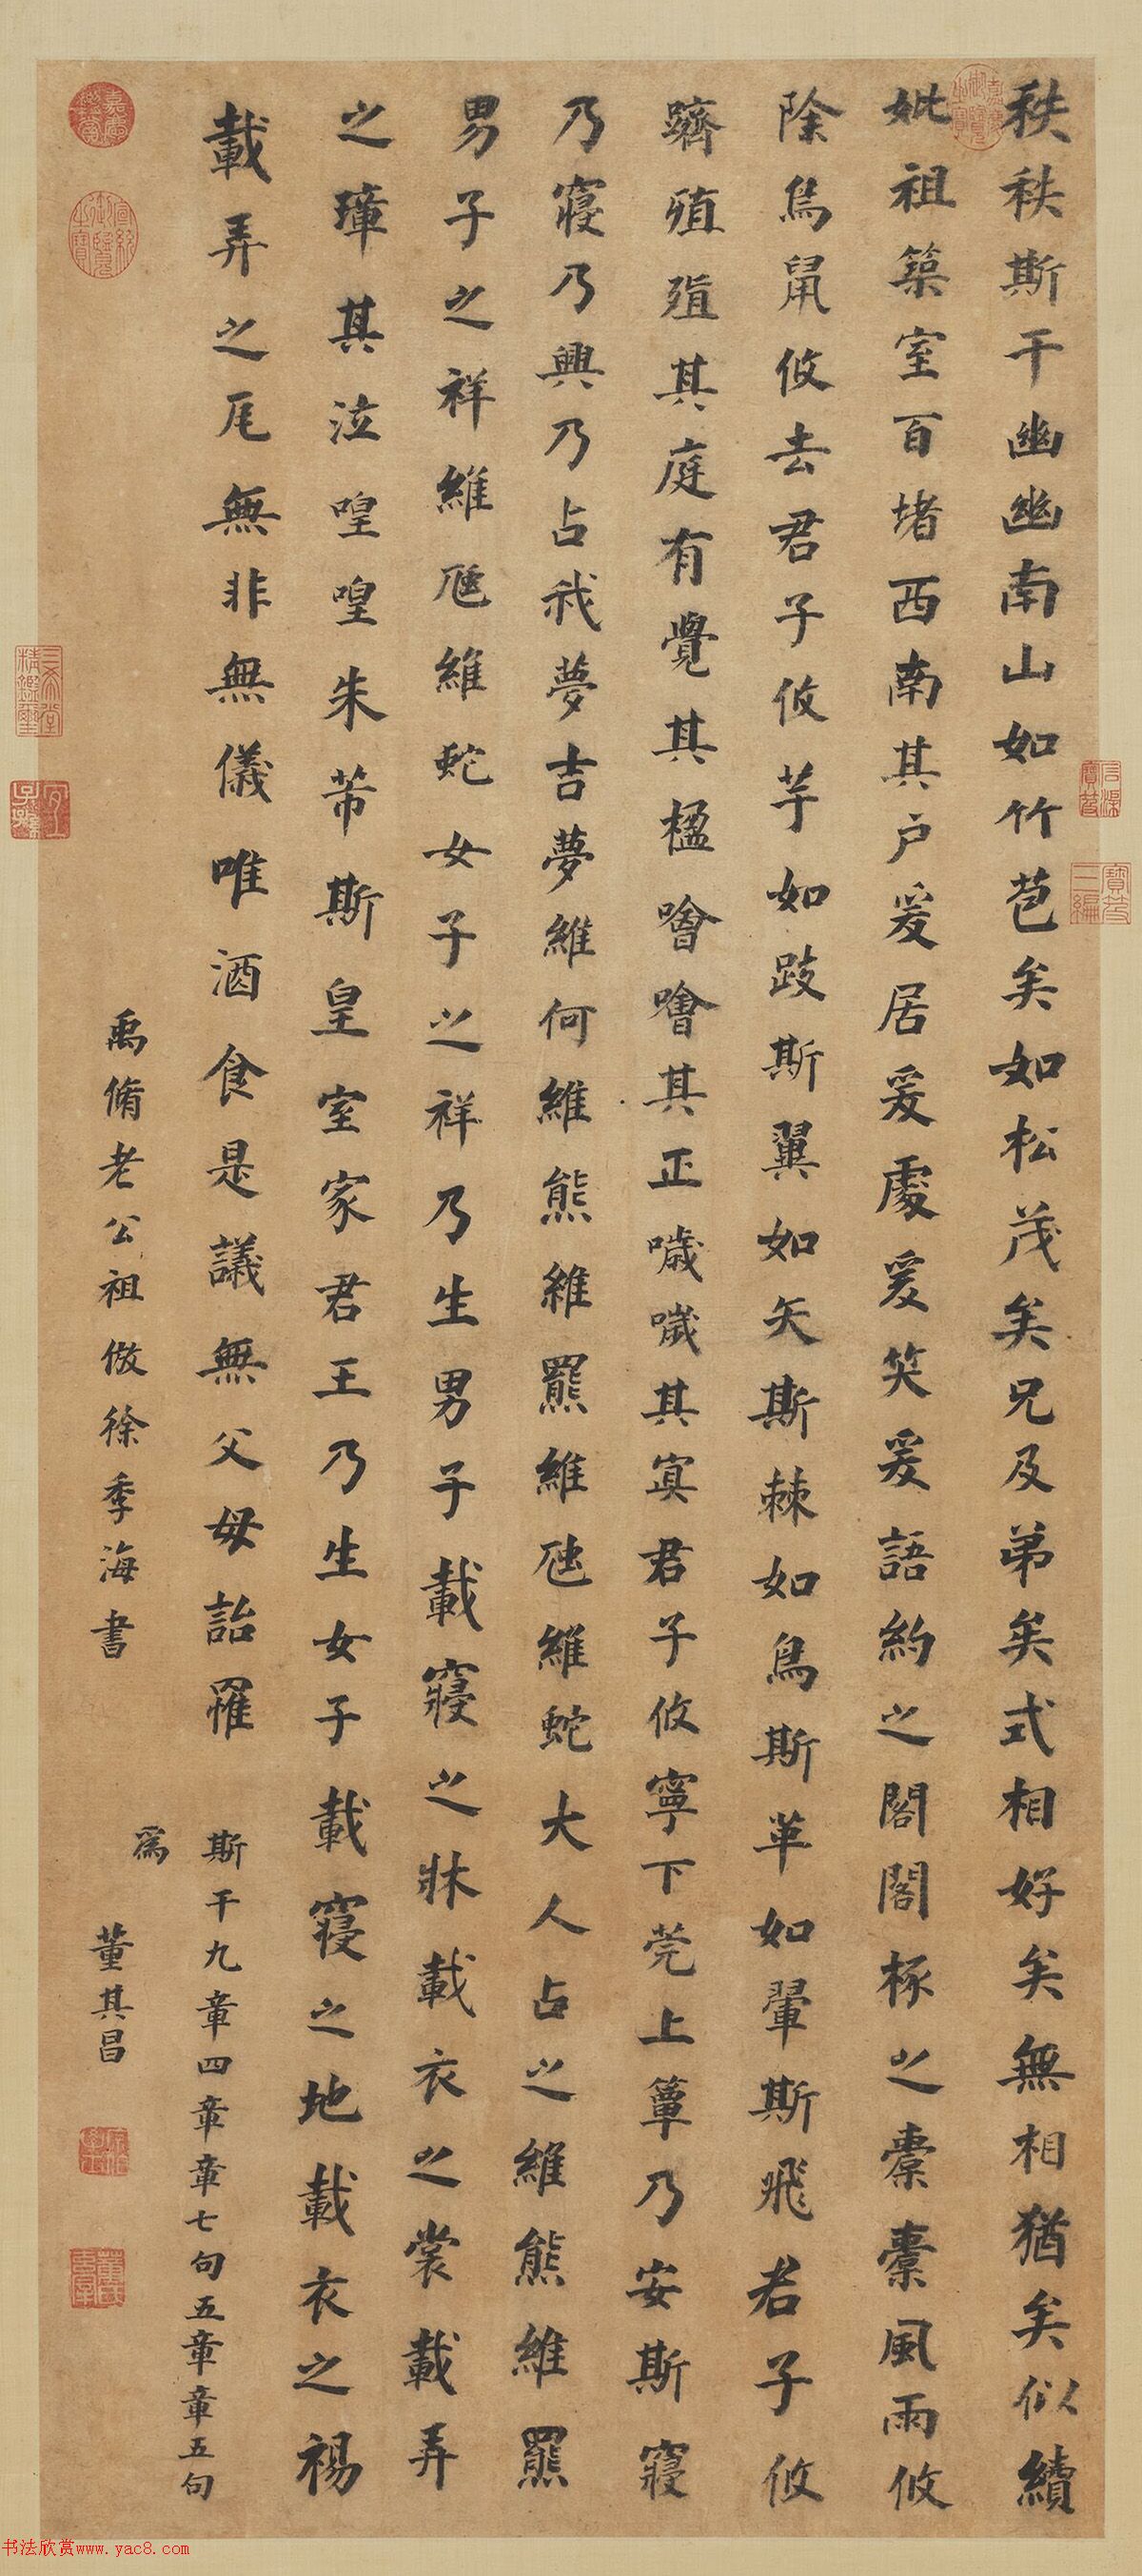 秩秩斯干幽幽南山如竹苞矣如松茂矣兄及弟矣式相好矣無相猶矣似續
妣祖築室百堵西南其户爰居爰處爰笑爰語約之閣閣椓之橐橐風雨攸
除鳥鼠攸去君子攸芋如跂斯翼如矢斯棘如鳥斯革如翬斯飛君子攸
躋殖殖其庭有覺其楹噲噲其正噦噦其寘君子攸寧下莞上簟乃安斯寢
乃寢乃興乃占我夢吉夢維何維熊維羆維虺維蛇大人占之維熊維羆
男子之祥維虺維蛇女子之祥乃生男子載寢之牀載衣之裳載弄
之璋其泣喤喤朱芾斯皇室家君王乃生女子載寢之地載衣之裼
載弄之瓦無非無儀唯酒食是議無父母詒罹
斯干九章四章章七句五章章五句
爲
禹脩老公祖倣徐季海書
董其昌
嘉慶御覽之寶
嘉慶鑑賞
宣統御覽之寶
三希堂精鑑璽
宜子孫
石渠寶笈
寶笈三編
書法欣赏www.yac8.com